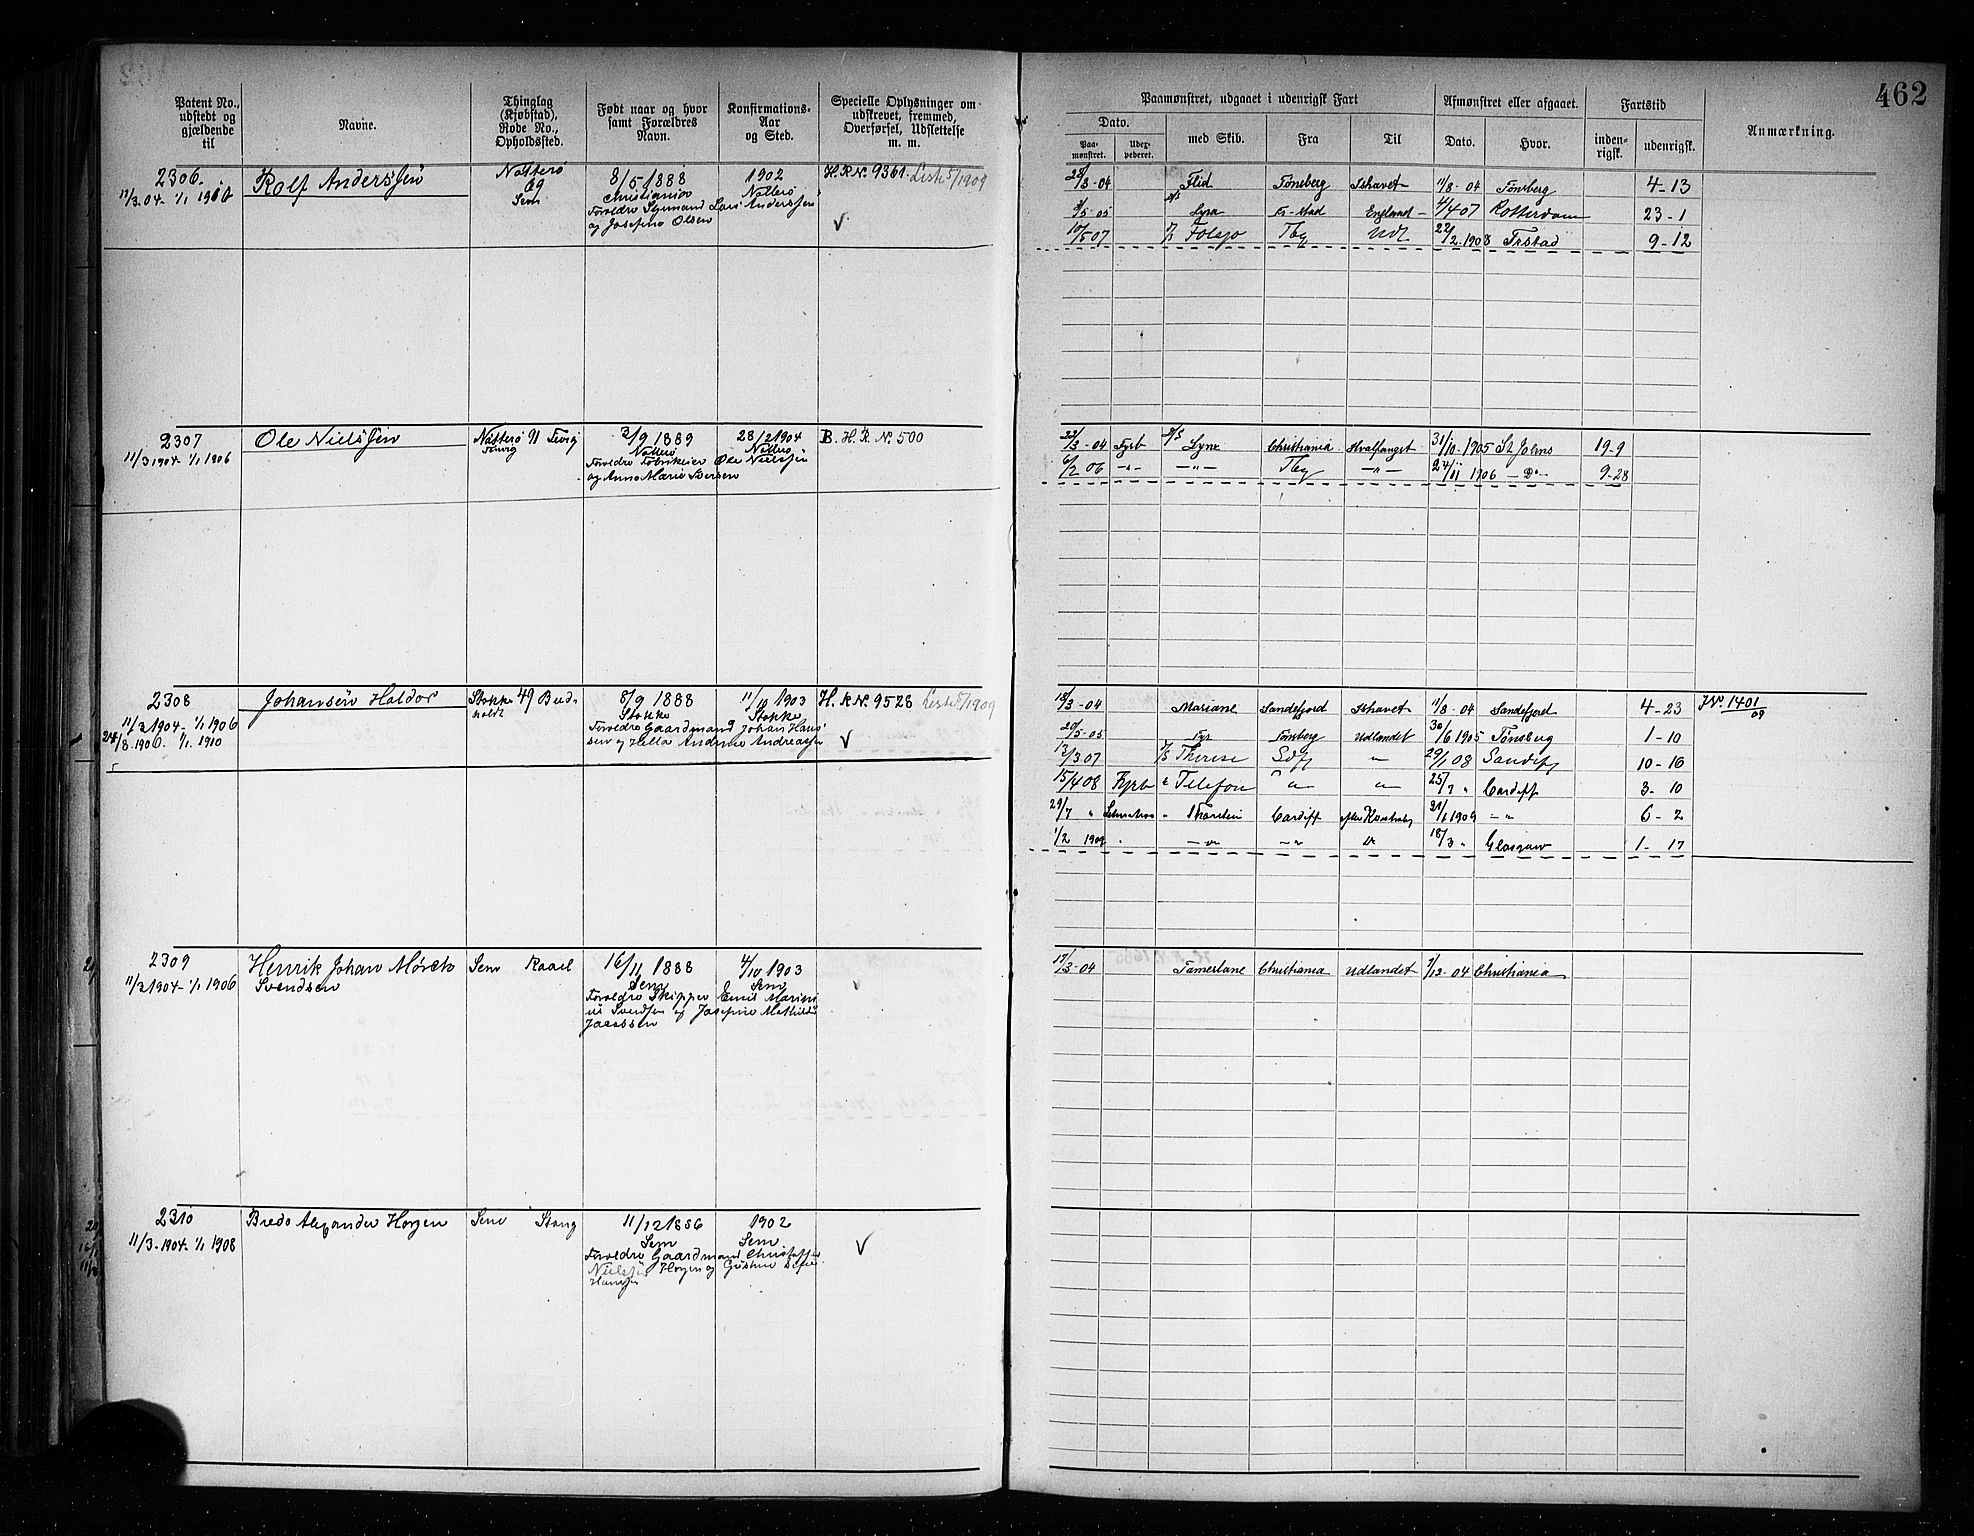 462
Patent No., udstedt og gjældende til
Navne.
Thinglag (Kjøbstad), Rode No., Opholdssted.
Født naar og hvor samt Forældres Navn.
Konfirmations-Aar og Sted.
Specielle Oplysninger om udskrevet, fremmed, Overførsel, Udslettelse m. m.
Paamønstret, udgaaet i udenrigsk Fart
Afmønstret eller afgaaet.
Fartstid
Anmærkning.
Dato.
med Skib.
Fra
Til
Dato.
Hvor.
inden-rigsk.
udenrigsk.
Paa-mønstret.
Udex-pederet.
2306.
Rolf Anderssen
Nøtterø
69
Sem
8/5 1888
Christiania
Forældre Styrmand Lars Anderssen
og Josefine Olsen
1902
Nøtterø
H.R.N. 9361. Liste 5/1909
28/3-04 Flid Tønsberg Ishavet 11/8-04 Tønsberg 4-13
Lyra Fr-stad England 4/4 07 Rotterdam 23-1
10/5 07 Tbg Udl 22/2.1908 Frstad 9-12
2307
11/3 1904-1/1 1906
Ole Nielssen
Nøtterø
3/9 1889
Nøtterø
og Anna Marie Iversen
28/2 1904
Nøtterø
Ole Nielssen
B. H. R. No. 500
22/3-04 Fyrb Christiania Hvalfangst 31/10.1905 St Johns 19-9
6/2 06 -"- -"- Tbg -"- 24/11 1906 -Do- 9-28
2308
11/3 1904-1/1 1906
1/1. 1910
Johansen Haldor
Stokke 49 Buds
holdt
8/9 1888
Stokke
Forældre Gaardmand Johan Han
sen og Helle Andrine Andreassen
11/10 1903
Stokke
H. R. N. 9528 Liste 5/1909
18/3-04 Mariane Sandefjord Ishavet 11/8-04 Sandefjord 4-23 JNo. 1401/09
20/5-05 Tyr Tønsberg Udlandet 30/6 1905 Tønsberg 1-10
12/3 07 Therese Sdfj " 29/1 08 Sandefj 10-16
15/4 08 Fyrb Telefon " " 25/7 " Cardiff 3-10
29/7 " Thorstein Cardiff 31/1 1909 -"- 6-2
1/2 1909 " -"- -"- 18/3 " Glasgow 1-17
2309
11/3 1904-1/1 1906
Henrik Johan Mørch
Svendsen
Sem Raael
16/11 1888
Sem
Forældre Skipper Emil Marini
us Svendsen og Josefine Mathilde
4/10 1903
Sem
17/3-04 Tamerlane Christiania Udlandet 7/12-04 Christiania
2310
11/3-1904-1/1 1908
Bredo Alexander Horgen
Sem Stang
11/12 1886
Sem
Forældre Gaardmand Christoffer
Nielsen Horgen og
1902
Sem